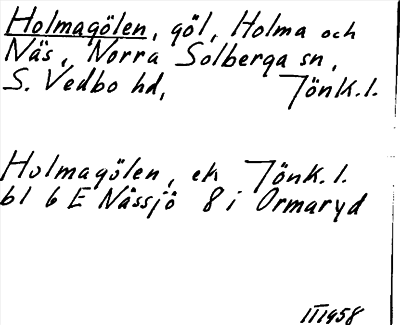 Holmagölen, göl, Holma och
Näs, Norra Solberga sn,
S. Vedbo hd, Jönk.l.
Holmagölen, ek Jönk.l.
bl 6 E Nässjö 8 i Ormaryd
III1958